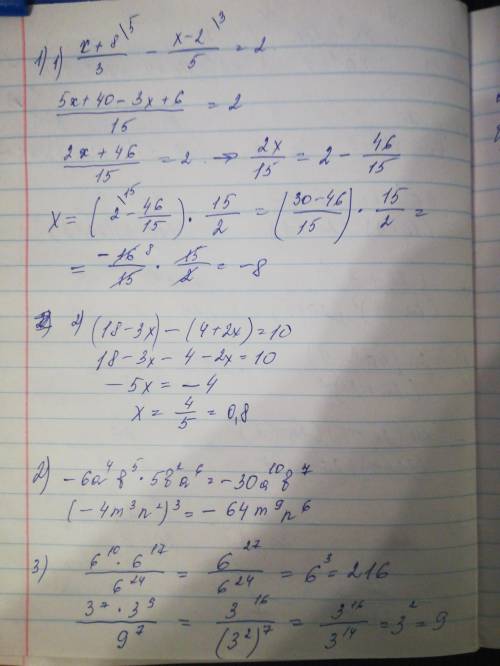 1) 1) \frac{x+8^{\backslash 5}}{3} - \frac{x-2^{\backslash 3}}{5} = 2
\frac{5x+40-3x+6}{15} = 2
\frac{2x+46}{15} = 2 → \frac{2x}{15} = 2 - \frac{46}{15}
x = (2^{\backslash 15} - \frac{46}{15}) · \frac{15}{2} = (\frac{30-46}{15}) · \frac{15}{2} =
= \frac{-16^{8}}{15} · \frac{15}{2} = -8
2) (18-3x)-(4+2x)=10
18-3x-4-2x=10
-5x = -4
x = \frac{4}{5} = 0,8
2) -6a^4b^5·5b^2a^6 = -30a^{10}b^7
(-4m^3n^2)^3 = -64m^9n^6
3) \frac{6^{10}·6^{17}}{6^{24}} = \frac{6^{27}}{6^{24}} = 6^3 = 216
\frac{3^7·3^9}{9^7} = \frac{3^{16}}{(3^2)^7} = \frac{3^{16}}{3^{14}} = 3^2 = 9